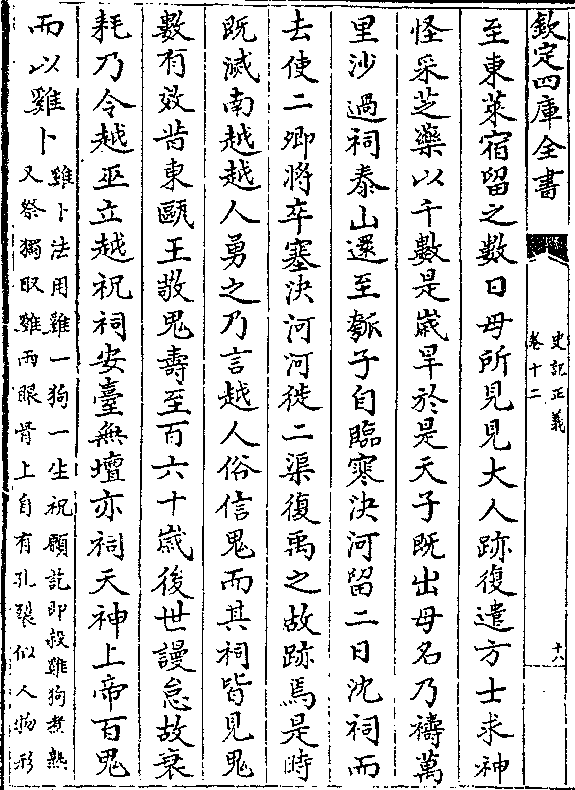 欽定四庫全書
史記正義
卷十二
十八
至東萊宿留之數日毋所見見大人跡復遣方士求神
怪采芝藥以千數是歲旱於是天子既出毋名乃禱萬
里沙過祠泰山還至瓠子自臨塞決河留二日沈祠而
去使二卿將卒塞決河河徙二渠復禹之故跡焉是時
既滅南越越人勇之乃言越人俗信鬼而其祠皆見鬼
數有效昔東甌王敬鬼壽至百六十歲後世謾怠故衰
耗乃令越巫立越祝祠安臺無壇亦祠天神上帝百鬼
而以雞卜
雞卜法用雞一狗一生祝願訖即殺雞狗煮熟
又祭獨取雞兩眼骨上自有孔裂似人物形